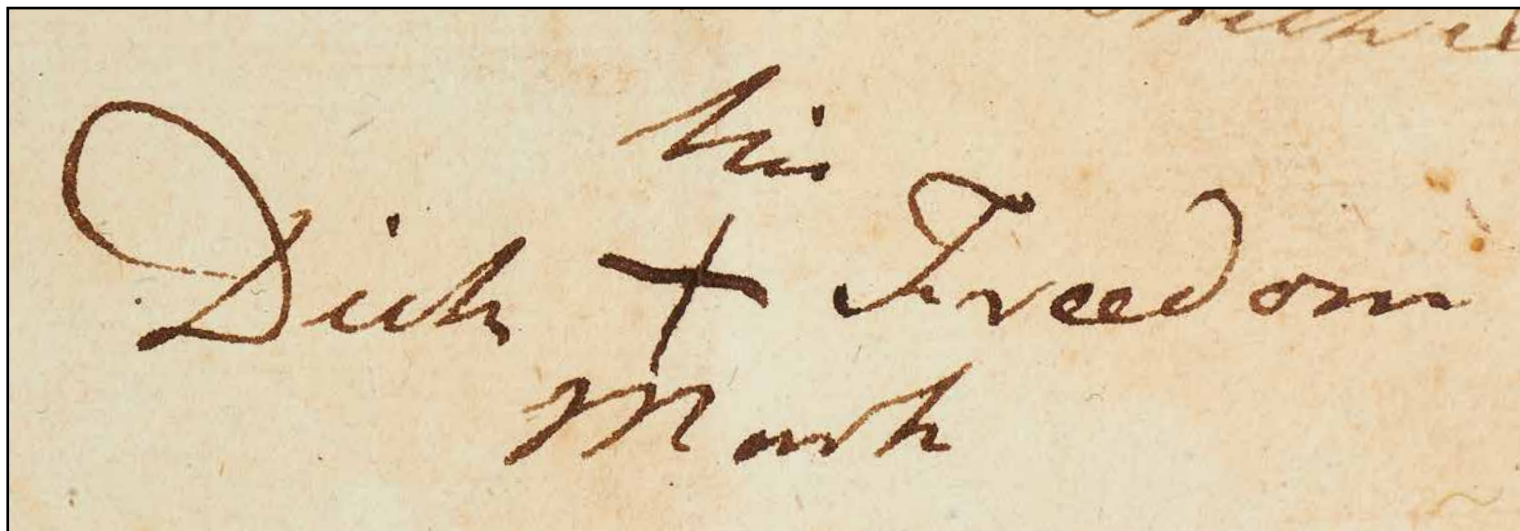 his
Dick + Freedom
Mark